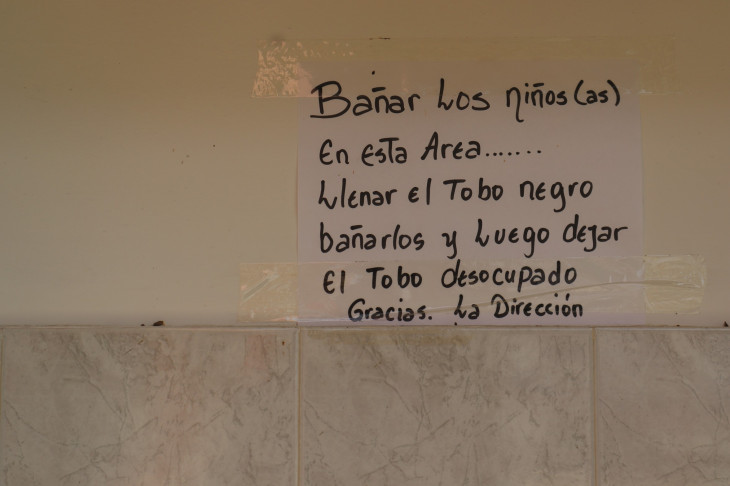 Bañar Los niños(as)
En Esta Area.......
Llenar el Tobo negro
bañarlos y Luego dejar
El Tobo desocupado
Gracias. La Dirección